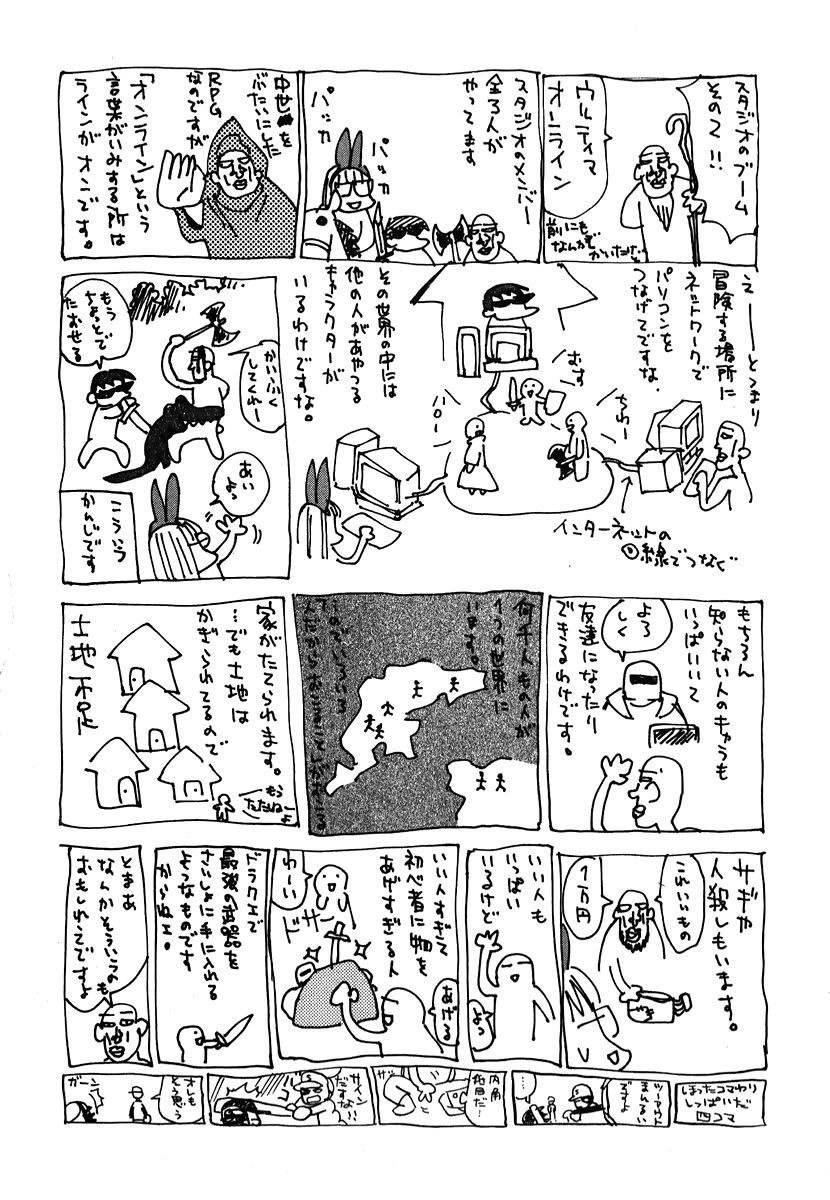 スタジオのブーム
その2!!
ウルティマ
オンライン
前にも
なんかで
かいたけど
スタジオのメンバー
全3人が
やってます
パッカ
パッカ
中世を
ぶたいにした
RPG
なのですが
「オンライン」という
言葉がいみする所は
ラインがオンです。
えーーとつまり
冒険する場所に
ネットワークで
パソコンを
つなげてですな、
その世界の中には
他の人があやつる
キャラクターが
いるわけですな。
むす
ちわー
バロー
インターネットの
線でつなぐ
もう
ちょっとで
たおせる
かいふく
してくれー
あい
よっ
こういう
かんじです
もちろん
知らない人のキャラも
いっぱいいて
友達になったり
できるわけです。
よろ
しく
何千人もの人が
1つの世界に
います。
家がたてられます。
…でも土地は
かぎられてるので
土地不足
もう
たたねーよ
サギや
人殺しもいます。
これいいもの
1万円
いい人も
いっぱい
いるけど
よっ
いい人すぎて
初心者に物を
あげすぎる人
あげる
ドサッ
わーい
ドラクエで
最強の武器を
さいしょに手に入れる
ようなものです
からねェ。
とまあ
なんかそういうのも
おもしれえですよ
あまったコマわり
しっぱいだ
四コマ
ツーアウト
まんるい
ですよ
…
内角
高目だ…
サイン
だすな!!
オレも
そう思う
ガーン